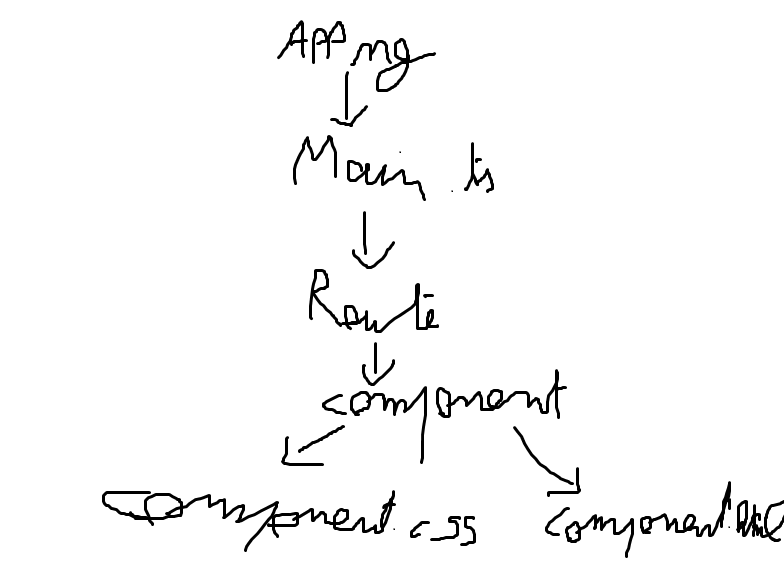 APP ng
Main .ts
Route
component
component.css
component.html